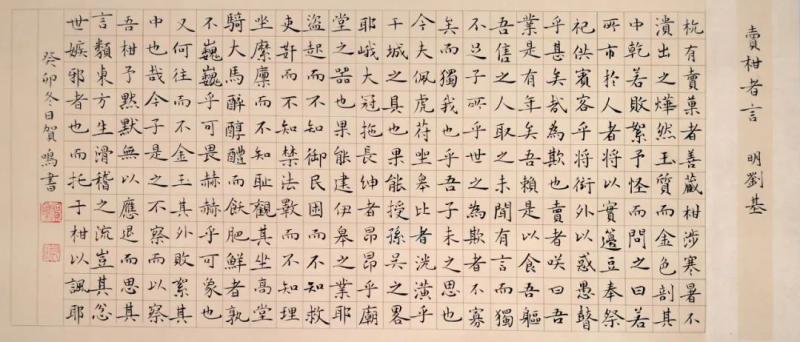 賣柑者言　明劉基
杭有賣菓者善藏柑涉寒暑不
潰出之燁然玉質而金色剖其
中乾若敗絮予怪而問之曰若
所市於人者將以實籩豆奉祭
祀供賓客乎將衒外以惑愚瞽
乎甚矣哉為欺也賣者咲曰吾
業是有年矣吾賴是以食吾軀
吾售之人取之未聞有言而獨
不足子所乎世之為欺者不寡
矣而獨我也乎吾子未之思也
今夫佩虎苻坐皋比者洸潢乎
干城之具也果能授孫吳之畧
耶峨大冠拖長紳者昂昂乎廟
堂之器也果能建伊皋之業耶
盜起而不知御民困而不知救
吏而不知禁法斁而不知理
坐縻廩而不知耻觀其坐高堂
騎大馬醉醇醴而飫肥鮮者孰
不巍巍乎可畏赫赫乎可象也
又何往而不金玉其外敗絮其
中也哉今子是之不察而以察
吾柑予默默無以應退而思其
言類東方生滑稽之流豈其忿
世嫉邪者也而托于柑以諷耶
癸卯冬日賀鳴書